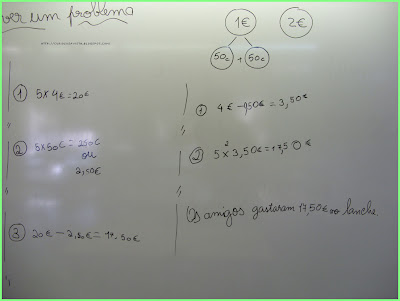 ver um problema
1€ 2€
50c + 50c
1 5x4€=20€
2 5x50c=250c
ou
2,50€
3 20€ - 2,50€ = 17,50€
1 4€ - 0,50€ = 3,50€
2 5x3,50€=17,50€
Os amigos gastaram 17,50€ no lanche.